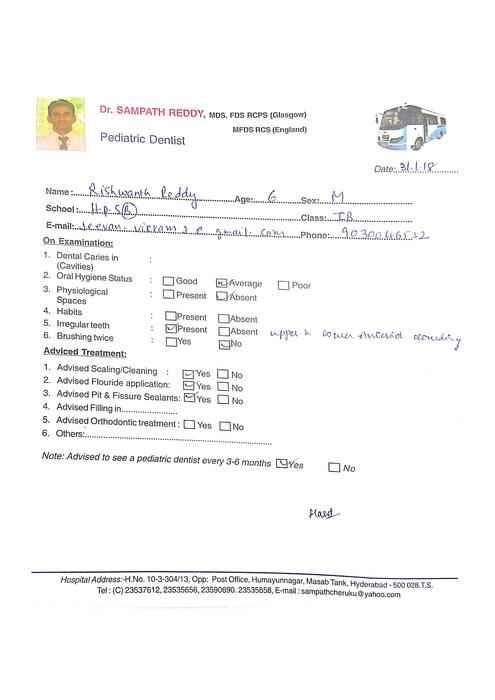 Dr. SAMPATH REDDY, MDS, FDS RCPS (Glasgow)
MFDS RCS (England)
Pediatric Dentist
Date: 31.1.18
Name: Rishwanth Reddy Age: 6 Sex: M
School: H.p.S (B) Class: IB
E-mail: @ gmail.com Phone:
On Examination:
1. Dental Caries in (Cavities) :
2. Oral Hygiene Status : Good Average Poor
3. Physiological Spaces : Present Absent
4. Habits : Present Absent
5. Irregular teeth : Present Absent upper & lower anterior crowding
6. Brushing twice : Yes No
Adviced Treatment:
1. Advised Scaling/Cleaning : Yes No
2. Advised Flouride application: Yes No
3. Advised Pit & Fissure Sealants: Yes No
4. Advised Filling in....................
5. Advised Orthodontic treatment : Yes No
6. Others:..............................................................
Note: Advised to see a pediatric dentist every 3-6 months Yes No
Hospital Address:-H.No. 10-3-304/13, Opp: Post Office, Humayunnagar, Masab Tank, Hyderabad - 500 028.T.S.
Tel : (C) 23537612, 23535656, 23590690. 23535858, E-mail : sampathcheruku@yahoo.com